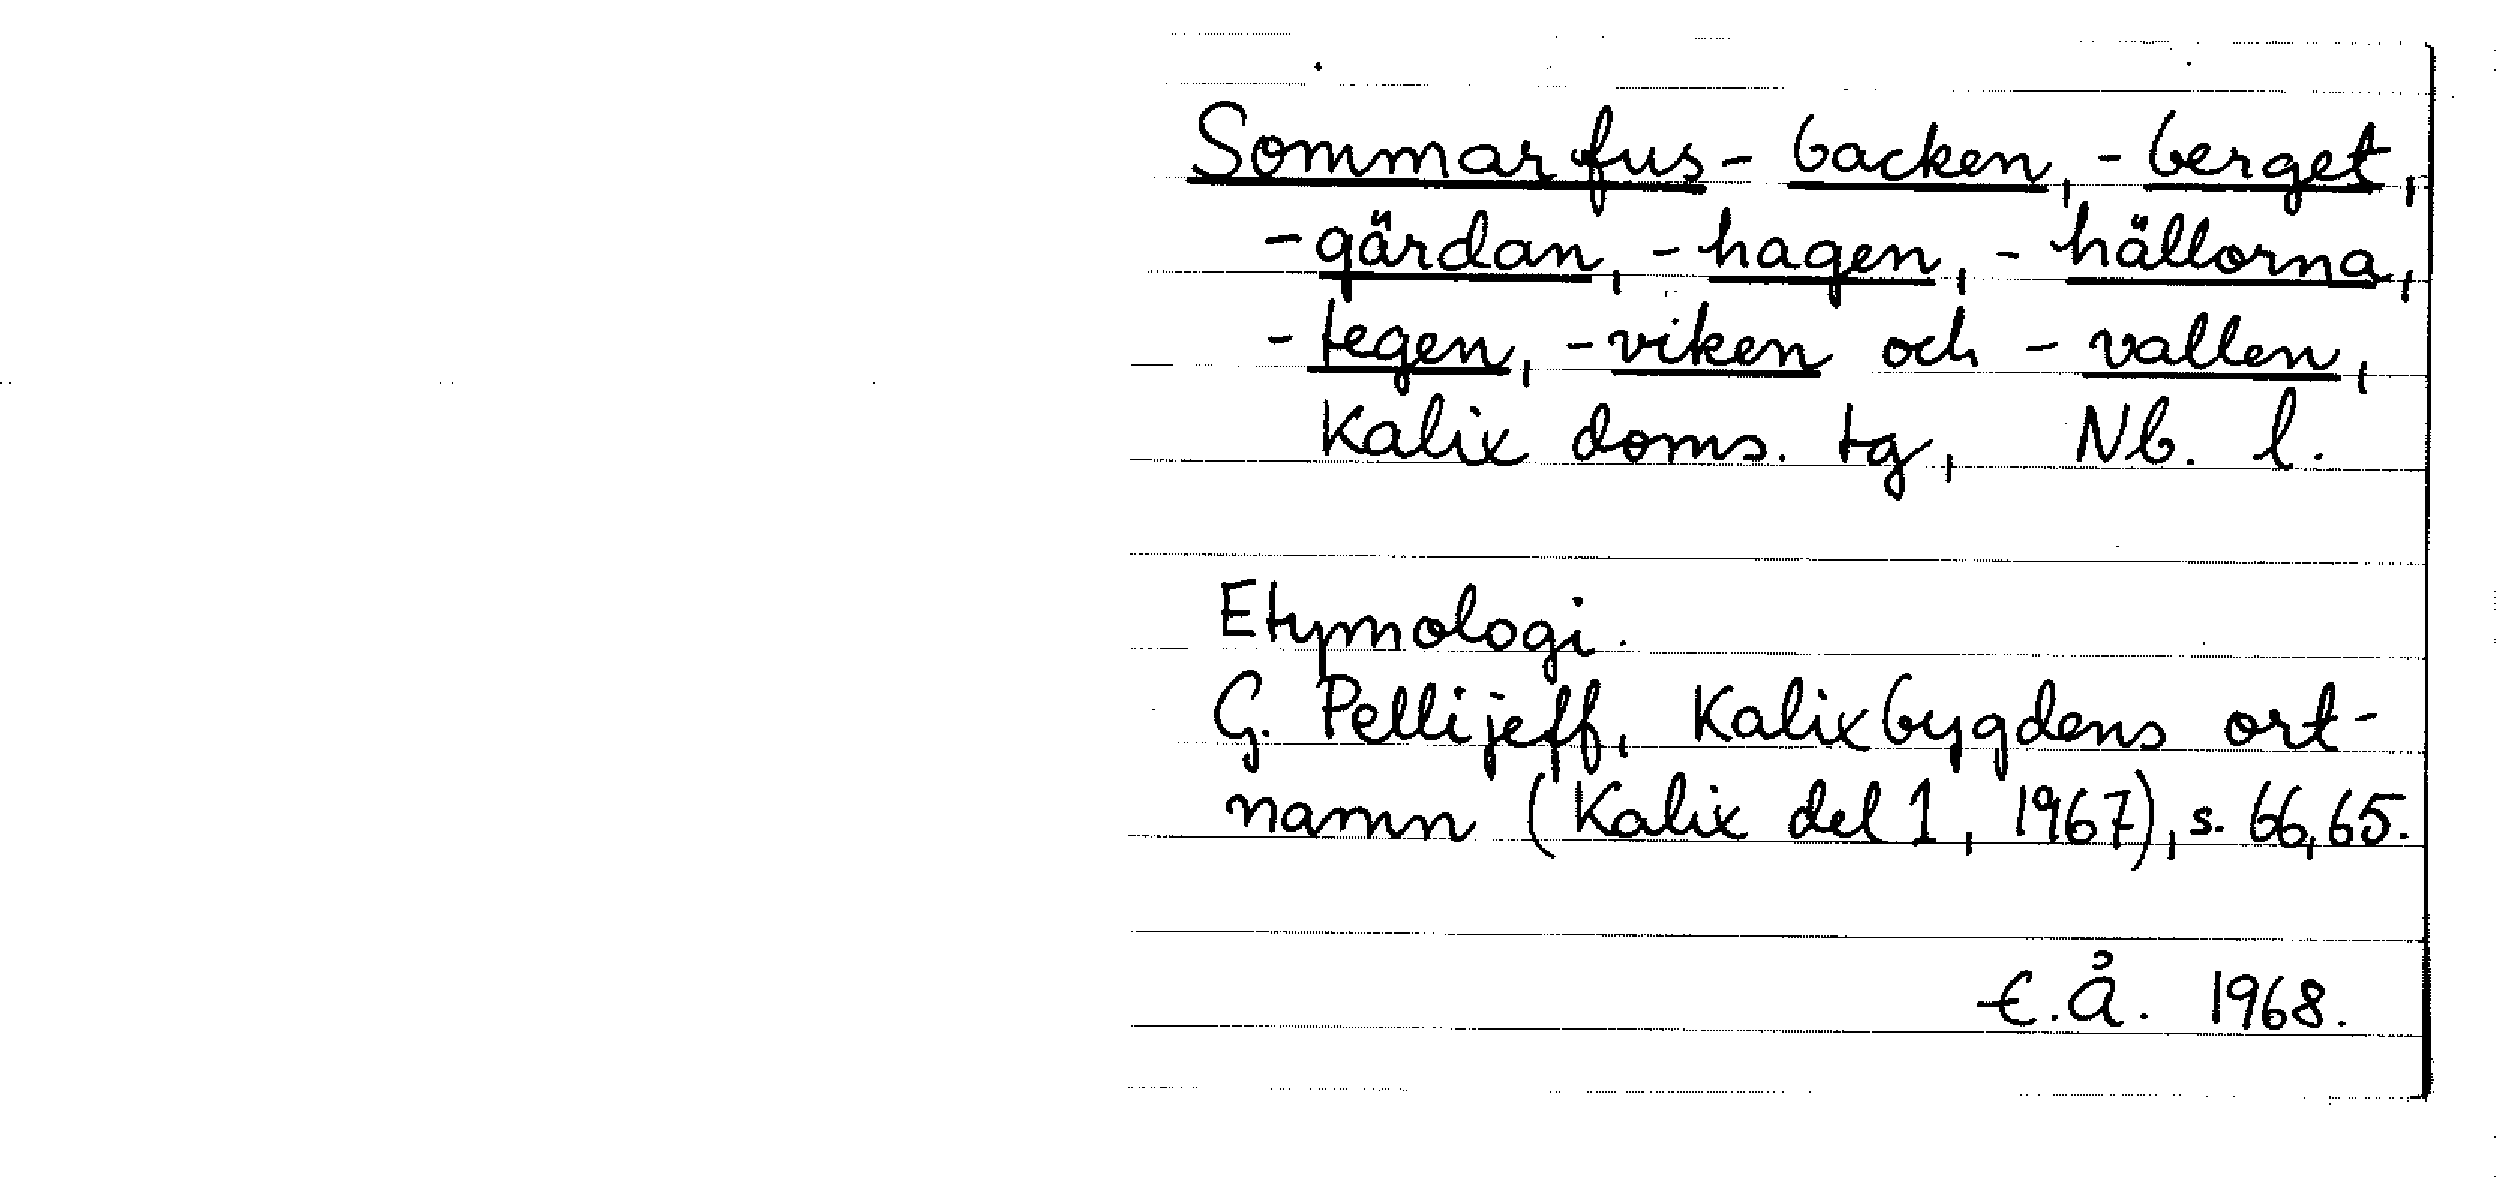 Sommarfus- backen, -berget,
-gärdan, -hagen, -hällorna,
-tegen, -viken och -vallen,
Kalix doms. tg, Nb. l.
Etymologi.
G. Pellijeff, Kalixbygdens ort-
namn (Kalix del 1, 1967), s. 66,65.
E.Å. 1968.